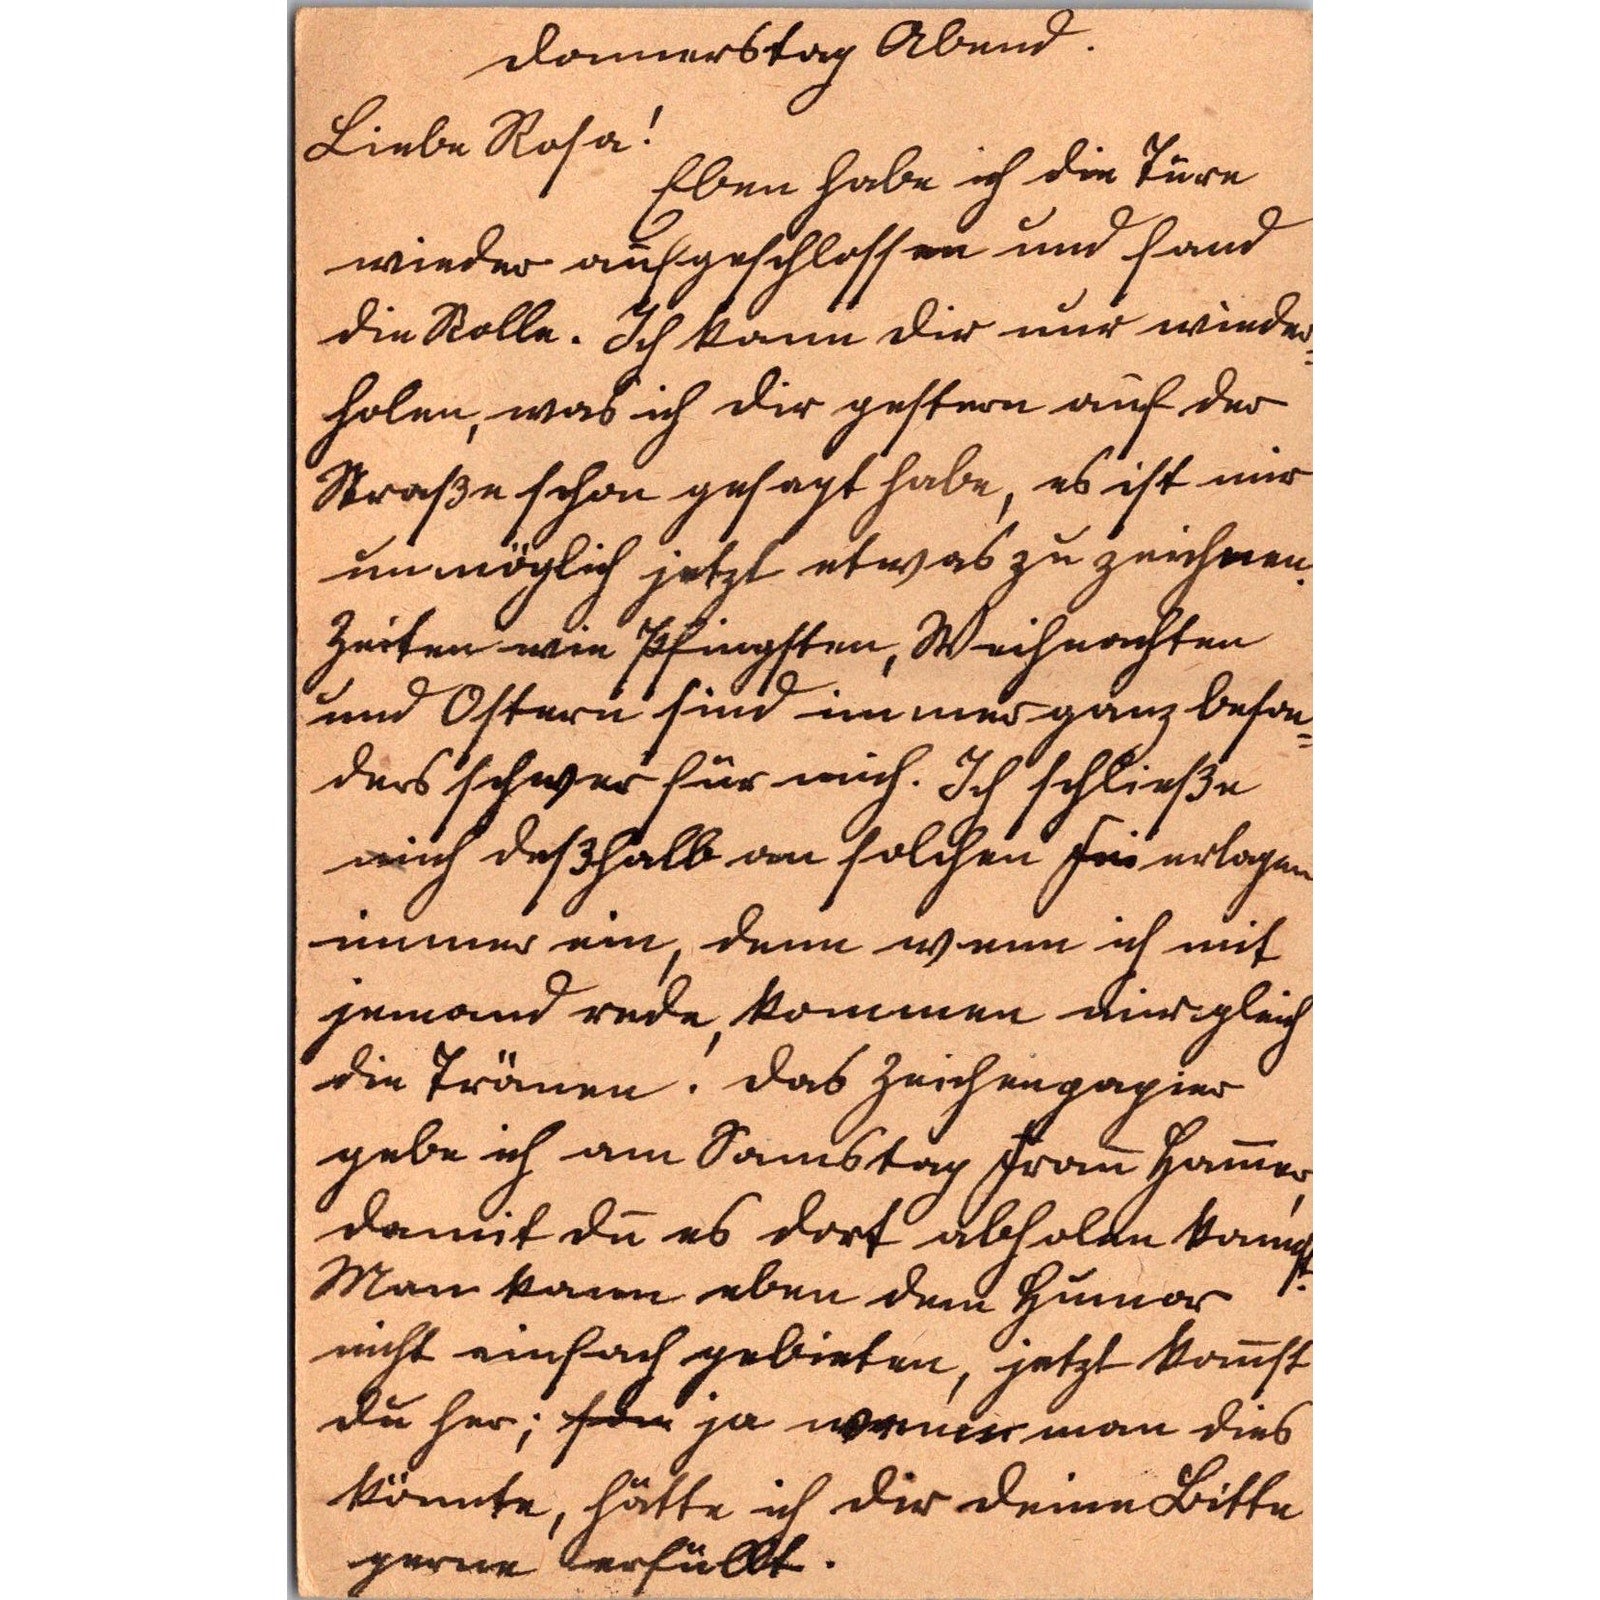 Donnerstag Abend.
Liebe Rosa!
Eben habe ich die Türe
wieder aufgeschlossen und fand
die Rolle. Ich kann dir nur wieder=
holen, was ich dir gestern auf der
Straße schon gesagt habe, es ist mir
unmöglich jetzt etwas zu zeichnen.
Zeiten wie Pfingsten, Weihnachten
und Ostern sind immer ganz beson=
ders schwer für mich. Ich schließe
mich deßhalb an solchen Feiertagen
immer ein, denn wenn ich mit
jemand rede, kommen mir gleich
die Tränen. Das Zeichenpapier
gebe ich am Samstag Frau Ham̄er,
damit du es dort abholen kannst.
Man kann eben dem Humor
nicht einfach gebieten, jetzt kom̄st
du her; ja wenn man dies
könnte, hätte ich dir deine Bitte
gerne erfüllt.